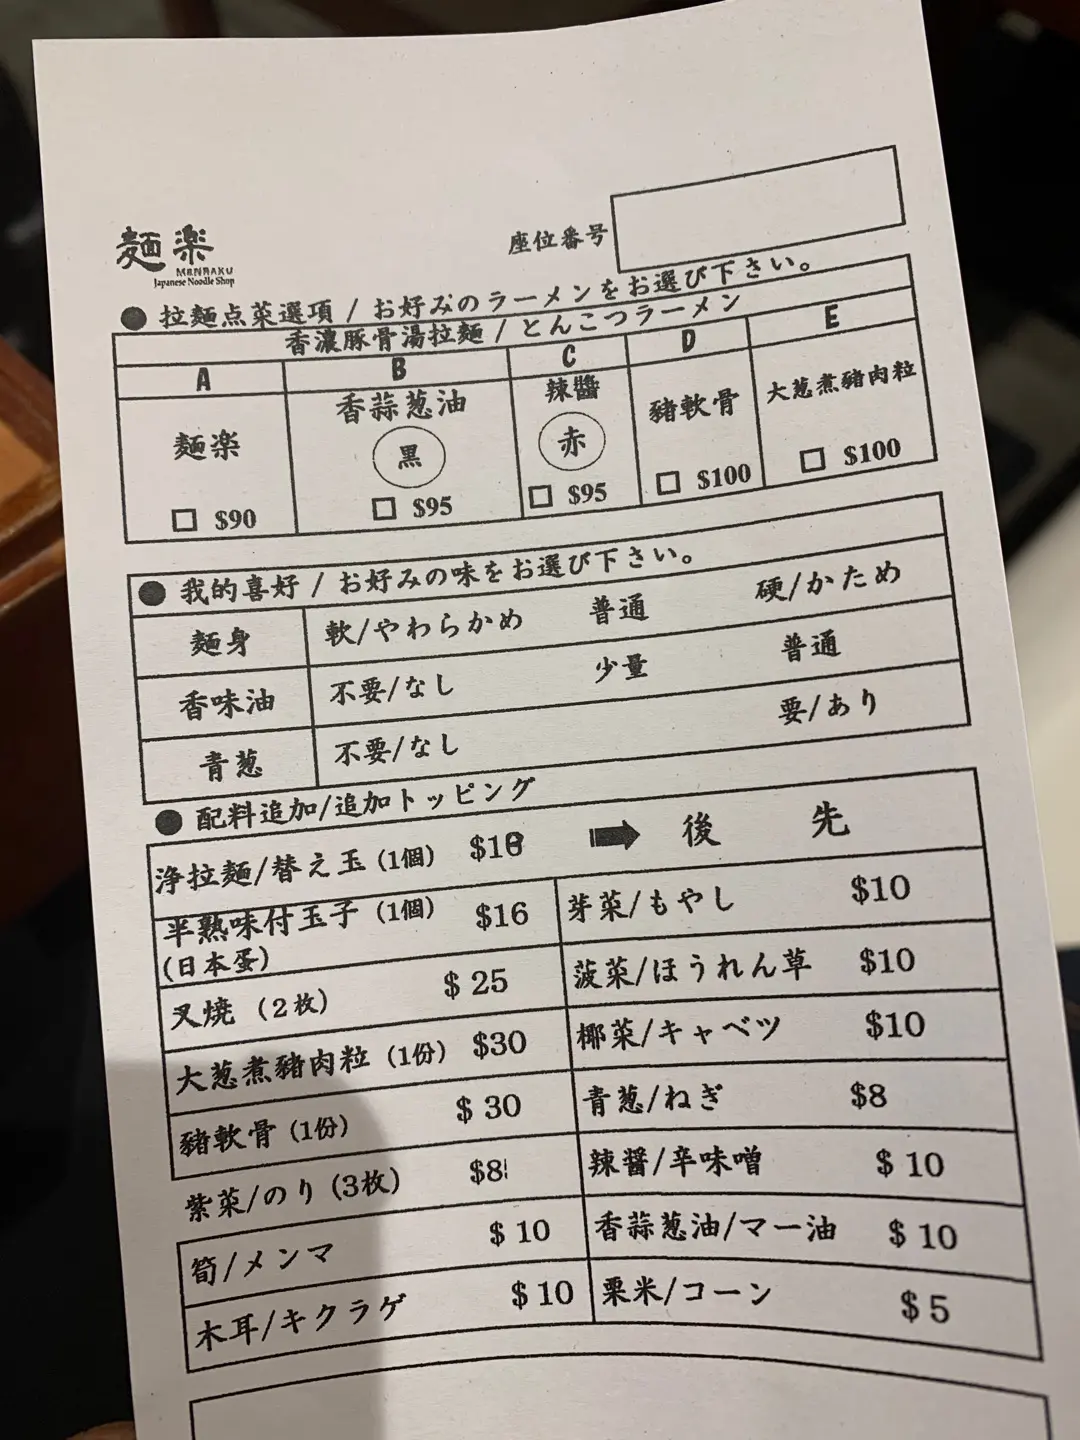 麵楽
MENRAKU
Japanese Noodle Shop
座位番号
● 拉麵点菜選項 / お好みのラーメンをお選び下さい。
香濃豚骨湯拉麵 / とんこつラーメン
A B C D E
麵楽 香蒜葱油 辣醬 豬軟骨 大葱煮豬肉粒
黒 赤
☐ $90 ☐ $95 ☐ $95 ☐ $100 ☐ $100
● 我的喜好 / お好みの味をお選び下さい。
麵身 軟/やわらかめ 普通 硬/かため
香味油 不要/なし 少量 普通
青葱 不要/なし 要/あり
● 配料追加/追加トッピング
浄拉麵/替え玉 (1個) 後 先
半熟味付玉子 (1個) $16 芽菜/もやし $10
(日本蛋)
叉焼 (2枚) $ 25 菠菜/ほうれん草 $10
大葱煮豬肉粒 (1份) $30 椰菜/キャベツ $10
豬軟骨 (1份) $ 30 青葱/ねぎ $8
紫菜/のり (3枚) $8 辣醬/辛味噌 $ 10
筍/メンマ $ 10 香蒜葱油/マー油 $ 10
木耳/キクラゲ $ 10 粟米/コーン $ 5